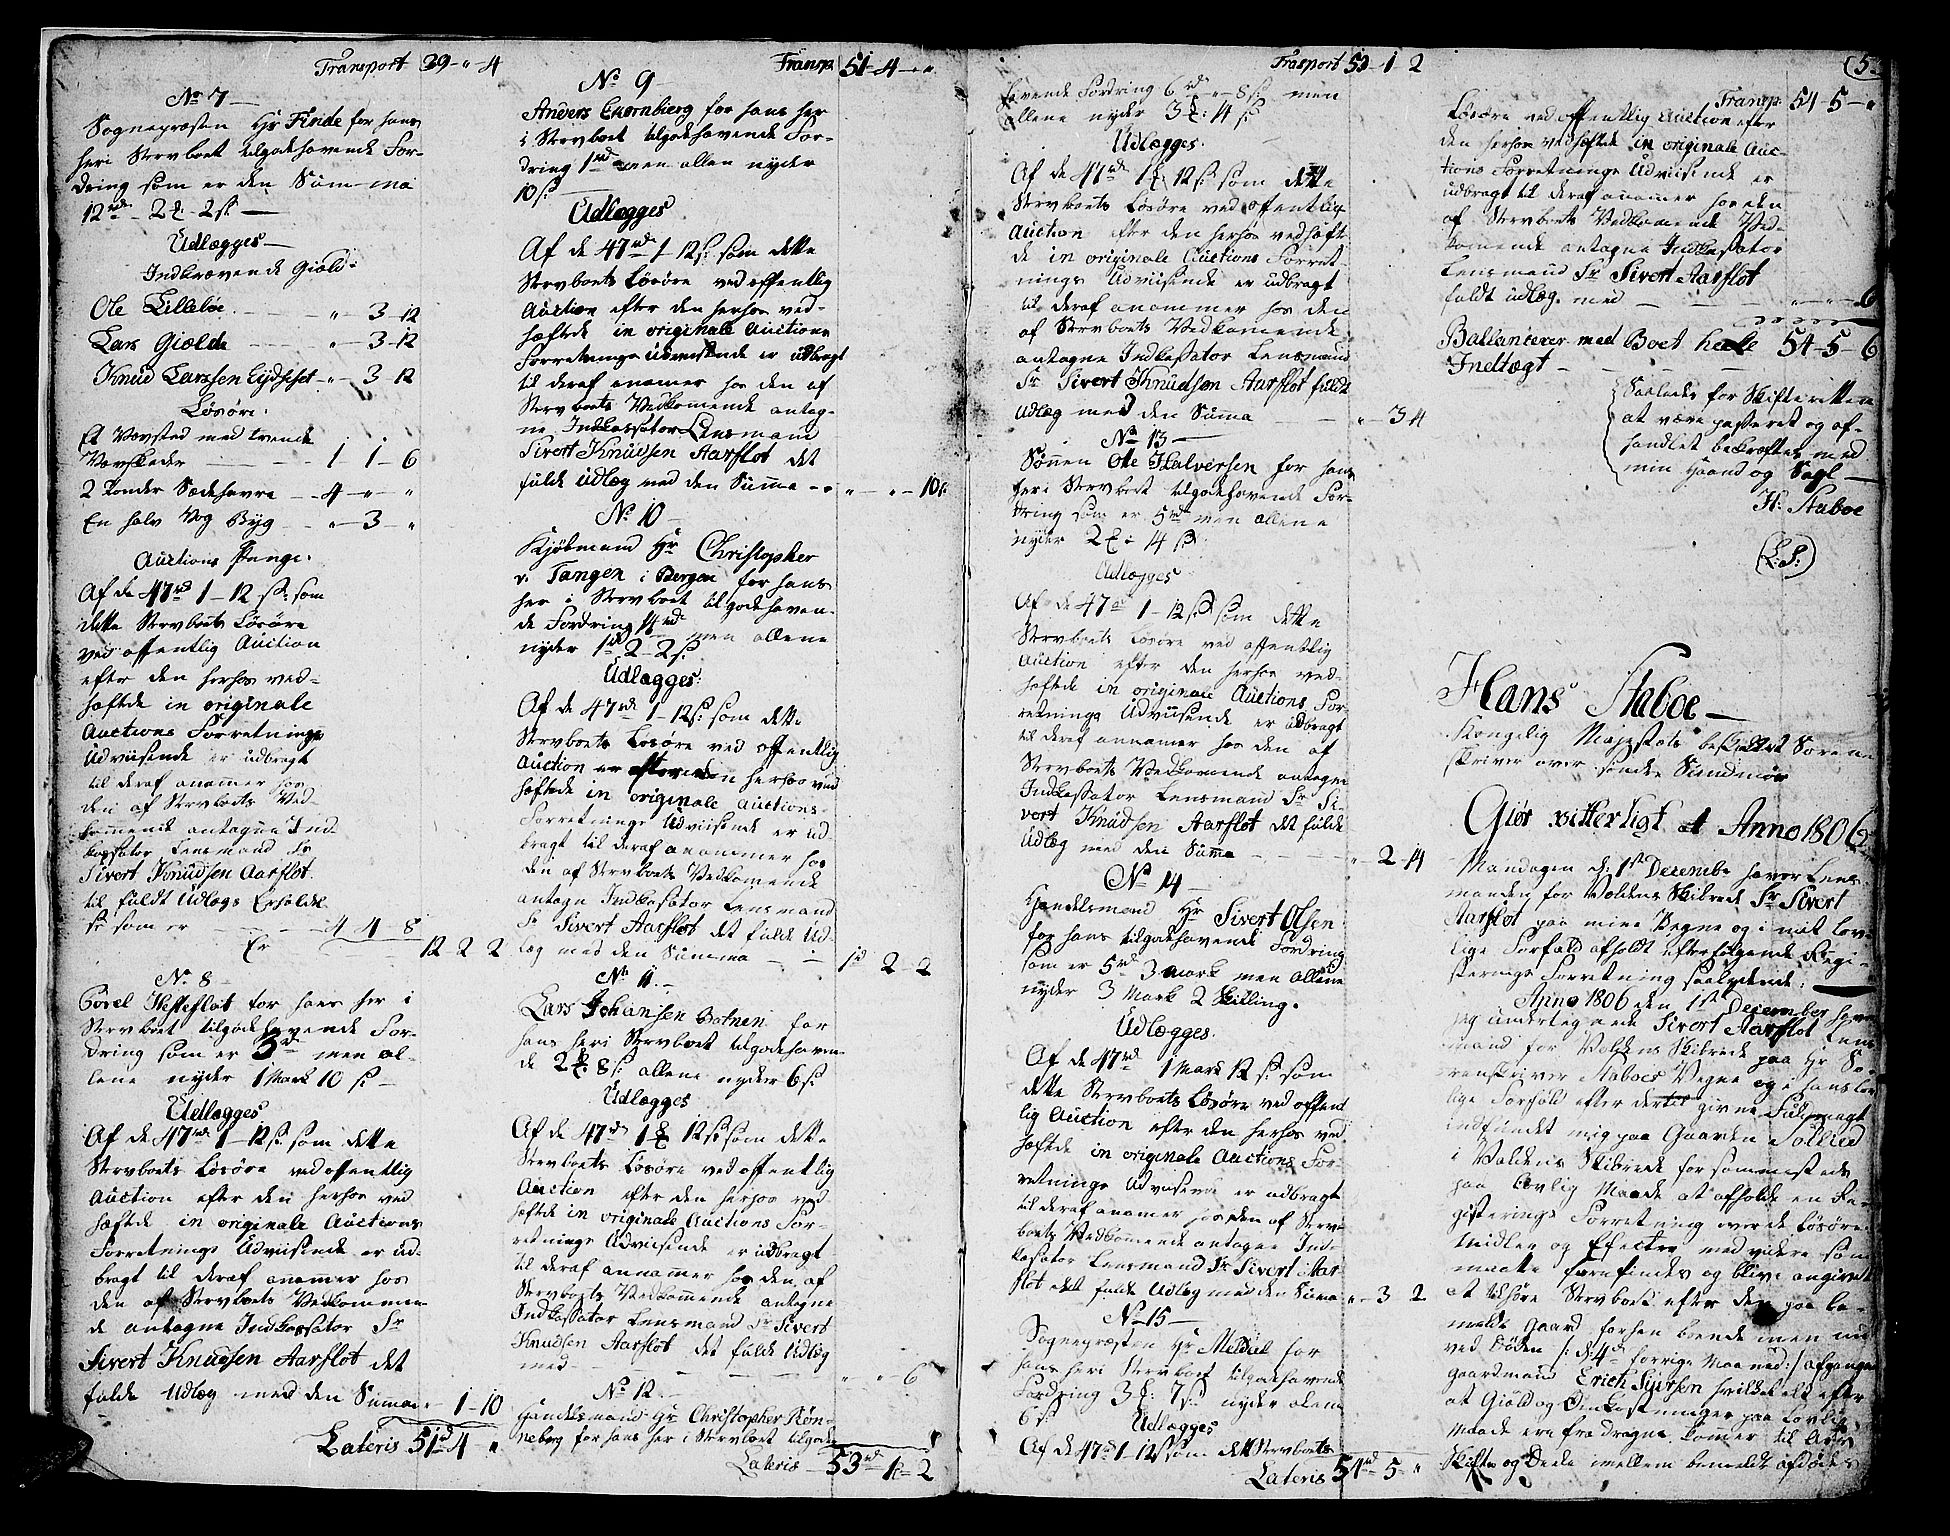 Transport 39 - " 4
No 7 -
Sognepræsten Hr Finde for hans
her i Stervboet tilgodehavende For-
dring som er den Summa
12rd - 2 - 2 s -
Udlægges -
Indkrævende Giæld.
Ole Lillebøe - - " - 3 - 12
Lars Giælde - - " - 3 - 12
Knud Larssen Eydseset - " - 3 - 12
Løsøre.
Et Vævsted med tvende
Vævskeder - - 1 1 - 6
2 tønder Sædehavre - 4 - " - "
En halv Vog Byg - " - 3 - "
Auctions Penge.
Af de 47rd 1 - 12 s: som
dette Stervboets Løsøre
ved offentlig Auction
efter den herhos ved-
hæftede in originale
Auctions Forretnings
Udviisende er udbragt
til deraf anammer hos
den af Stervboets Ved-
kommende antagne Ind-
kassator Lensmand Sr
Sivert Knudsen Aarflot
til fuldt Udlægs Erholdel-
se som er - - 4 4 8
Er - 12 2 2
No 8 -
Gørel Heltefløt for hans her i
Stervboet tilgodehavende For-
dring som er 3rd men al-
lene nyder 1 Mark 10 s -
Udlægges
Af de 47rd 1 - 12 s: som dette
Stervboets Løsøre ved offentlig
Auction efter den herhos ved
hæftede in originale Auctions
Forretnings Udviisende er ud-
bragt til deraf anamer hos
den af Stervboets Vedkommen-
de antagne Indkassator Sr
Sivert Knudsen Aarflot det
fulde Udlæg med den Summa " 1 - 10
Lateris 51rd 4 - "
Transp. 51 - 4 - "
No 9
Anders Eqornberg for hans her
i Stervboet tilgodehavende For-
dring 1rd men allene nyder
10 s:
Udlægges
Af de 47rd 1 - 12 s: som dette
Stervboets Løsøre ved offentlig
Auction efter den herhos ved-
hæftede in originale Auctions
Forretnings Udviisende er udbragt
til deraf anamer hos den af
Stervboets Vedkomende antag-
ne Indkassator Lensmand
Sivert Knudsen Aarflot det
fulde Udlæg med den Summa - " - " - 10
No 10
Kjøbmand Hr Christopher
v. Tangen i Bergen for hans
her i Stervboet tilgodehaven-
de Fordring 14rd men allene
nyder 1rd 2 - 2 s:
Udlægges:
Af de 47rd 1 - 12 s: som dette
Stervboets Løsøre ved offentlig
Auction efter den herhos ved
hæftede in originale Auctions-
Forretnings Udviisende er ud
bragt til deraf anammer hos
den af Stervboets Vedkomende
antagn Indkasator Lensmand
Sr Sivert Aarflot det fulde Ud-
læg med den Summa - - 1rd 2 - 2
No 11 -
Lars Johansen Botnen for
hans heri Stervboet tilgodehaven-
de 2 8 s: allene nyder 6 s:
Udlægges
Af de 47rd 1 12 s: som dette
Stervboets Løsøre ved offentlig
Auction efter den herhos ved
hæftede in originale Auctions For-
retnings Udviisende er udbragt
til deraf annamer hos den af
Stervboets Vedkommende antagne
Indkassator Lensmand Sr Sivert
Knudsen Aarflot det fulde Udlæg
med - - - " " 6
No 12 -
Handelsmand Hr Christopher Røn-
neberg for hans her i Stervboet tilgode
Lateris - 53rd - 1 - 2
Trasport 53 - 1 2
havende Fordring 6rd - " - 8 s: men
allene nyder 3: 4 s
Udlægges.
Af de 47rd 1 12 s: som dette
Stervboets Løsøre ved offentlig
Auction efter den herhos vedhæft
de in originale Auctions Forret-
nings Udviisende er udbragt
til deraf anammer hos den
af Stervboets Vedkomende
antagne Indkassator Lensmand
Sr Sivert Knudsen Aarflot fuldt
Udlæg med den Summa - - " - 3 4
No 13 -
Sønnen Ole Halversen for hans
her i Stervboet tilgodehavende For-
dring som er 5rd men allene
nyder 2: 14 s:
Udlægges
Af de 47rd 1 - 12 s: som dette
Stervboets Løsøre ved offentlig
Auction efter den herhos ved-
hæftede in originale Auctions For-
retnings Udviisende er udbragt
til deraf annamer hos den af
Stervboets Vedkomende antagne
Indkassator Lensmand Sr Si-
vert Knudsen Aarflot det fulde
Udlæg med den Summa - - " - 2 14
No 14 -
Handelsmand Hr Sivert Olsen
for hans tilgodehavende Fordring
som er 5rd 3 Mark men allene
nyder 3 Mark 2 Skilling.
Udlægges.
Af de 47rd 1 Mark 12 s: som
dette Stervboets Løsøre ved offent
lig Auction efter den herhos ved
hæftede in originale Auctions For-
retnings Udviisende er udbragt
til deraf anamer hos den af Sterv-
boets Vedkommende antagne Ind-
kasator Lensmand Sr Sivert Aar
flot det fulde Udlæg med den Suma " - 3 2
No 15 -
Sognepræsten Hr Meldal for
hans heri Stervboet tilgodehavende
Fordring 3: 7 s: nyder alene
6 s:
Udlægges
Af de 47rd 1 - 12 s: som dette Stervboets
Lateris 54rd - 5 - "
Transp: 54 - 5 - "
Løsøre ved offentlig Auction efter
den herhos vedhæftede in originale Auc-
tions Forretnings Udviisende er
udbragt til deraf anamer hos den
af Stervboets Vedkomende Ved-
komende antagne Indkassator
Lensmand Sr Sivert Aarflot
fuldt Udlæg med - - " - " - 6
Ballancerer med Boet heele 54 - 5 - 6
Indtægt - -
Saaledes for Skifteretten
at være passeret og af-
handlet bekræftes med
min Haand og Segl -
H: Staboe
(L.S.)
Hans Staboe -
Kongelig Majestæts bestaltet Soren-
skriver over søndre Sundmør
Giør vitterligt at Anno 1806
Mandagen d: 1st Decembr haver Lens-
manden for Voldens Skibrede Sr Sivert
Aarflot paa mine Vegne og i mit lov-
lige Forfald afholdt efterfølgende Regi-
sterings Forretning saalydende:
Anno 1806 den 1st December haver
jeg undertegnede Sivert Aarflot Lens-
mand for Voldens Skibrede paa Hr So-
renskriver Staboes Vegne og i hans lov-
lige Forfald efter dertil givne Fuldmagt
indfundet mig paa Gaarden Sollied
i Voldens Skibrede for sammesteds
paa lovlig Maade at afholde en Re-
gisterings Forretning over de Løsøre
Midler og Effecter med videre som
maatte forefindes og blive angivet
at tilhøre Stervboet efter den paa be-
meldte Gaard forhen boende men nu
ved Døden /: d: 4de forrige Maaned :/ afgangne
Gaardmand Erich Siursen hvilket alt efter
at Giæld og Omkostninger paa lovlig
Maade ere fradragne komer til Arv
Skifte og Deele mellem bemeldte afdødes